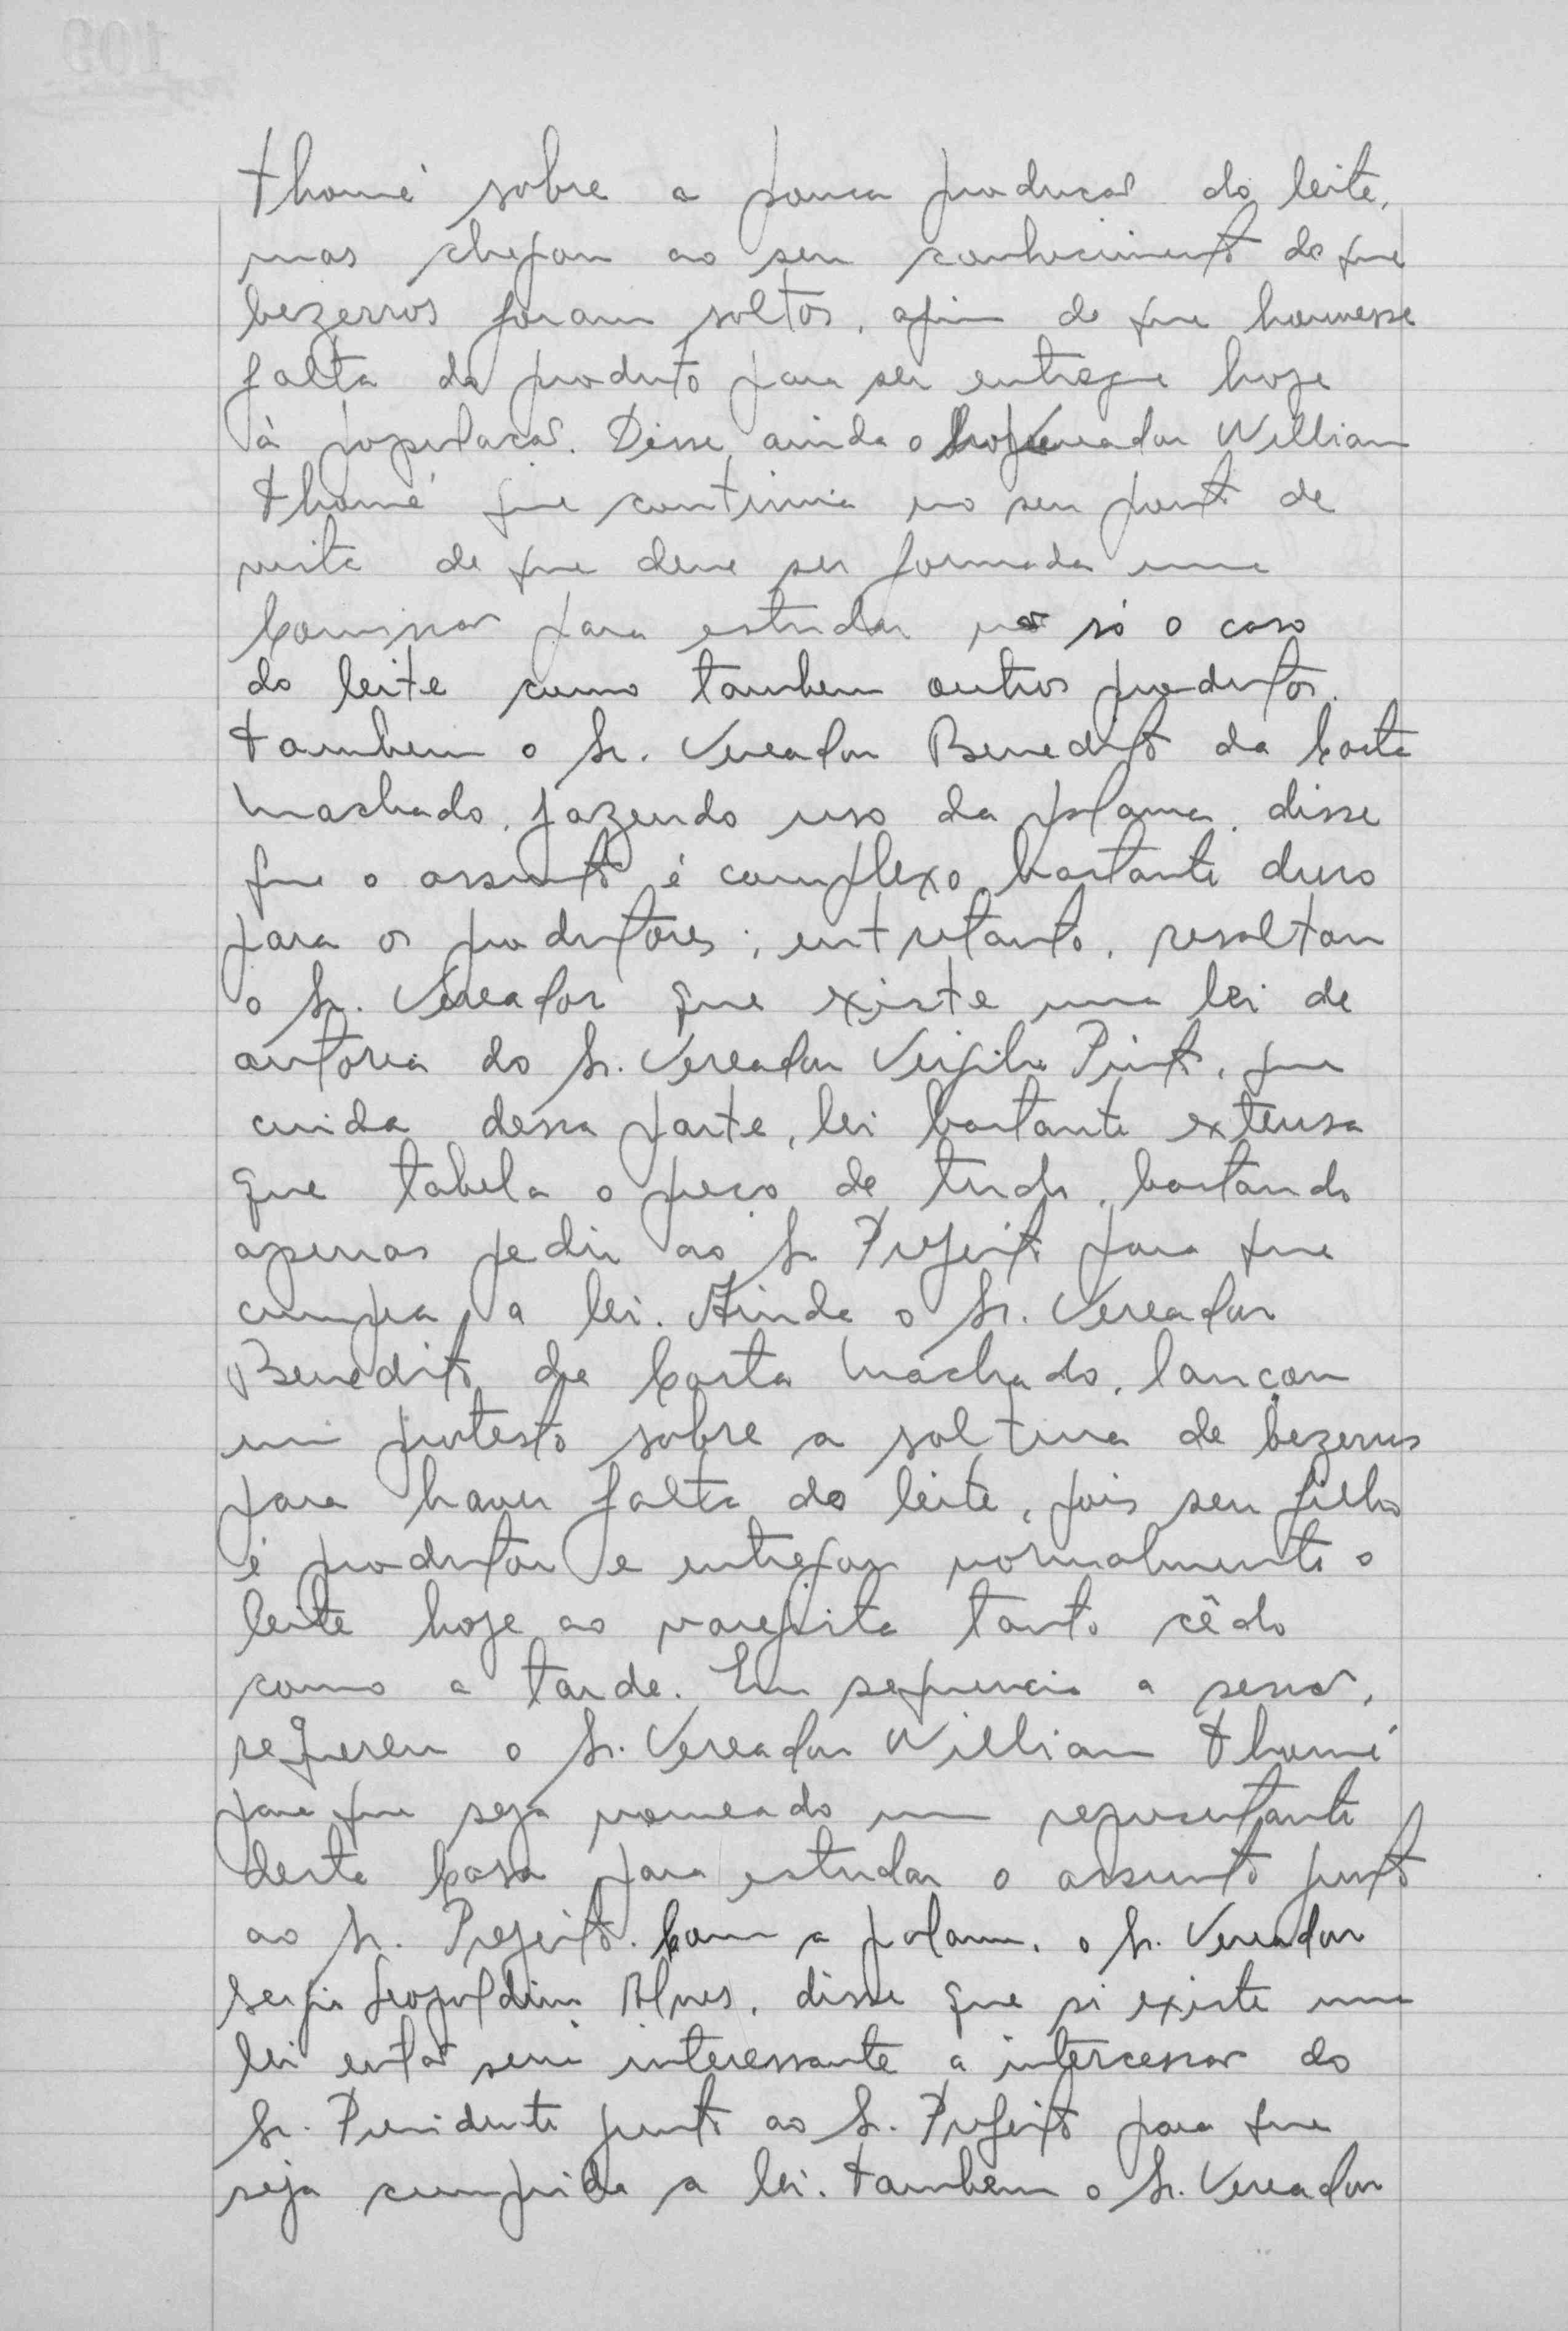 Thomé sobre a pouca producão do leite,
mas chegou ao seu conhecimento de que
bezerros foram soltos, afim de que houvesse
falta do produto para ser entregue hoje
à populacão. Disse ainda o Vereador William
Thomé que continúa no seu ponto de
vista de que deve ser formada uma
Comissão para estudar não só o caso
do leite como tambem outros produtos.
Tambem o Sr. Vereador Benedito da Costa
Machado, fazendo uso da palavra, disse
que o assunto é complexo, bastante duro
para os produtores; entretanto, resaltou
o Sr. Vereador que existe uma lei de
autoria do Sr. Vereador Virgilio Pinto, que
cuida dessa parte, lei bastante extensa
que tabela o preço de tudo, bastando
apenas pedir ao Sr. Prefeito para que
cumpra a lei. Ainda o Sr. Vereador
Benedito da Costa Machado, lançou
um protesto sobre a soltura de bezerros
para haver falta do leite, pois seu filho
é produtor e entregou normalmente o
leite hoje ao varejista tanto cêdo
como a tarde. Em sequencia a sessão,
requereu o Sr. Vereador William Thomé
para que seja nomeado um representante
desta Casa para estudar o assunto junto
ao Sr. Prefeito. Com a palavra, o Sr. Vereador
Sergio Leopoldino Alves, disse que si existe uma
lei então seria interessante a intercessão do
Sr. Presidente junto ao Sr. Prefeito para que
seja cumprida a lei. Tambem o Sr. Vereador